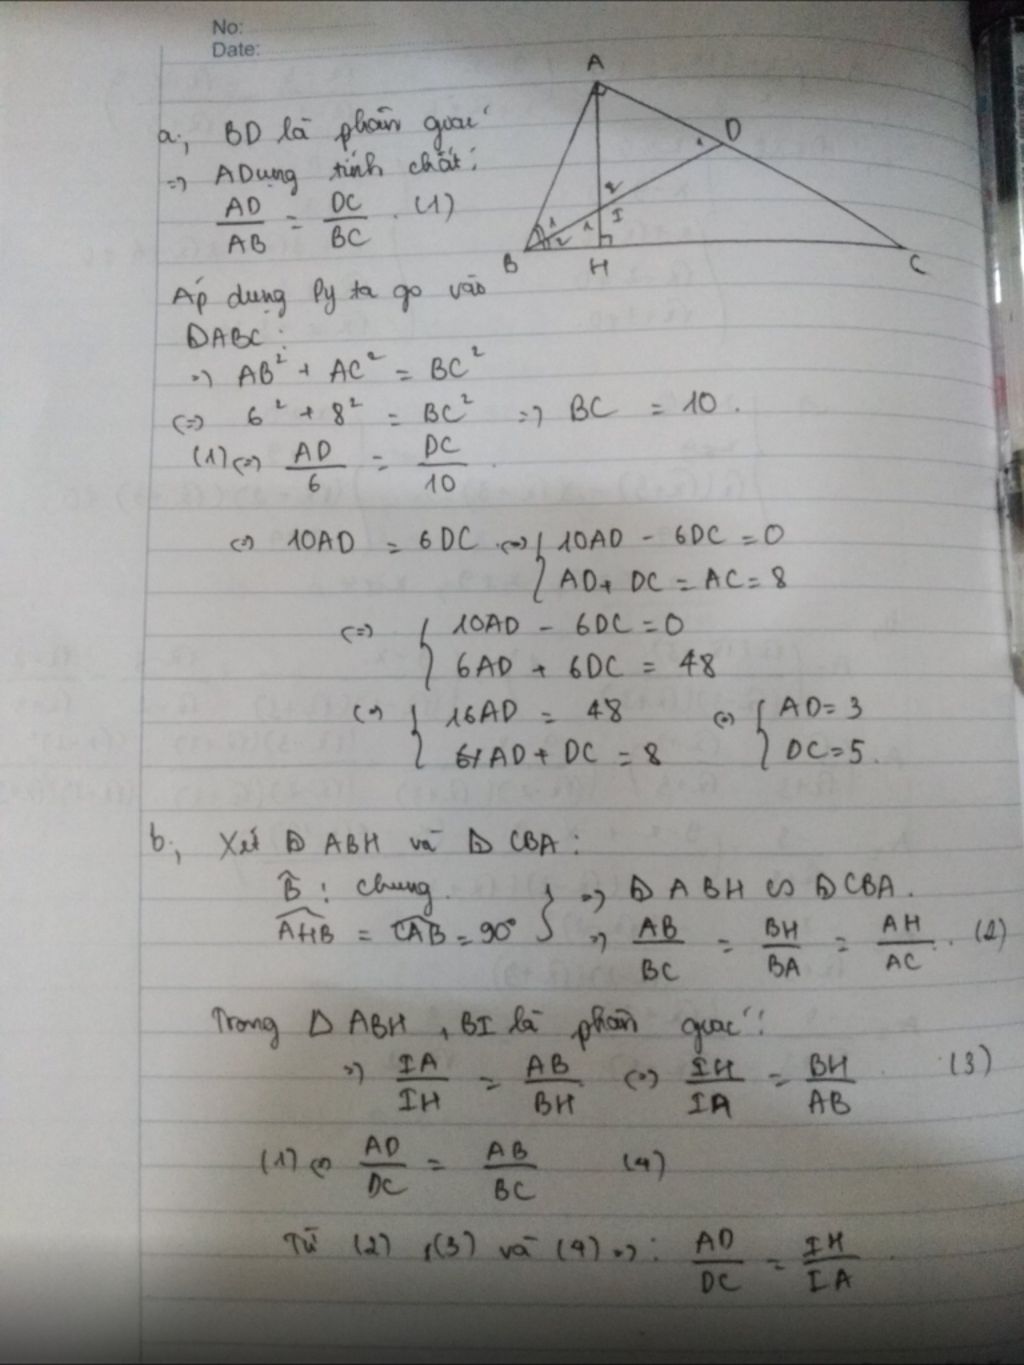 No:
Date:
a, BD là phân giác
=> ADụng tính chất:
AD/AB = DC/BC. (1)
Áp dụng Py ta go vào
ΔABC:
=> AB² + AC² = BC²
<=> 6² + 8² = BC² => BC = 10.
(1) <=> AD/6 = DC/10.
<=> 10AD = 6DC <=> { 10AD - 6DC = 0
AD + DC = AC = 8
<=> { 10AD - 6DC = 0
6AD + 6DC = 48
<=> { 16AD = 48 <=> { AD = 3
AD + DC = 8 DC = 5.
b, Xét Δ ABH và Δ CBA:
B̂: chung. } => Δ ABH ∽ Δ CBA.
AHB = CAB = 90° => AB/BC = BH/BA = AH/AC. (2)
Trong Δ ABH, BI là phân giác:
=> IA/IH = AB/BH <=> IH/IA = BH/AB (3)
(1) <=> AD/DC = AB/BC (4)
Từ (2), (3) và (4) => : AD/DC = IH/IA.
A
D
1
2
I
1
1
2
B
H
C